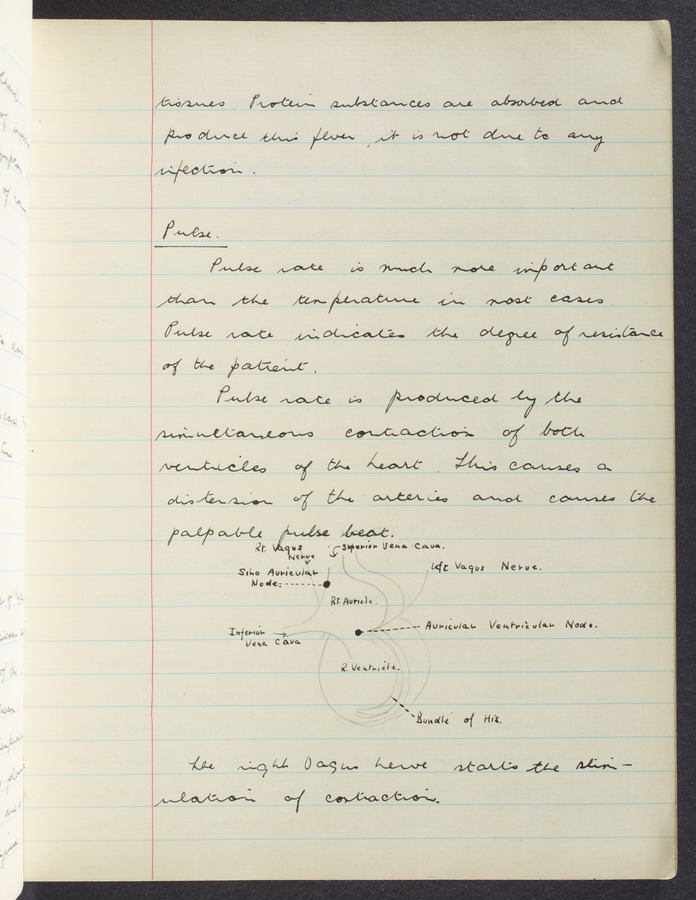 tissues. Protein substances are absorbed and
produce this fever, it is not due to any
infection.
Pulse.
Pulse rate is much more important
than the temperature in most cases.
Pulse rate indicates the degree of resistance
of the patient.
Pulse rate is produced by the
simultaneous contraction of both
ventricles of the heart. This causes a
distension of the arteries and causes the
palpable pulse beat.
Rt. Vagus
Nerve
Superior Vena Cava.
Left Vagus Nerve.
Sino Auricular
Node.
Rt. Auricle.
Inferior
Vena Cava
Auricular Ventricular Node.
R. Ventricle.
Bundle of His.
The right Vagus nerve starts the stim-
ulation of contraction.